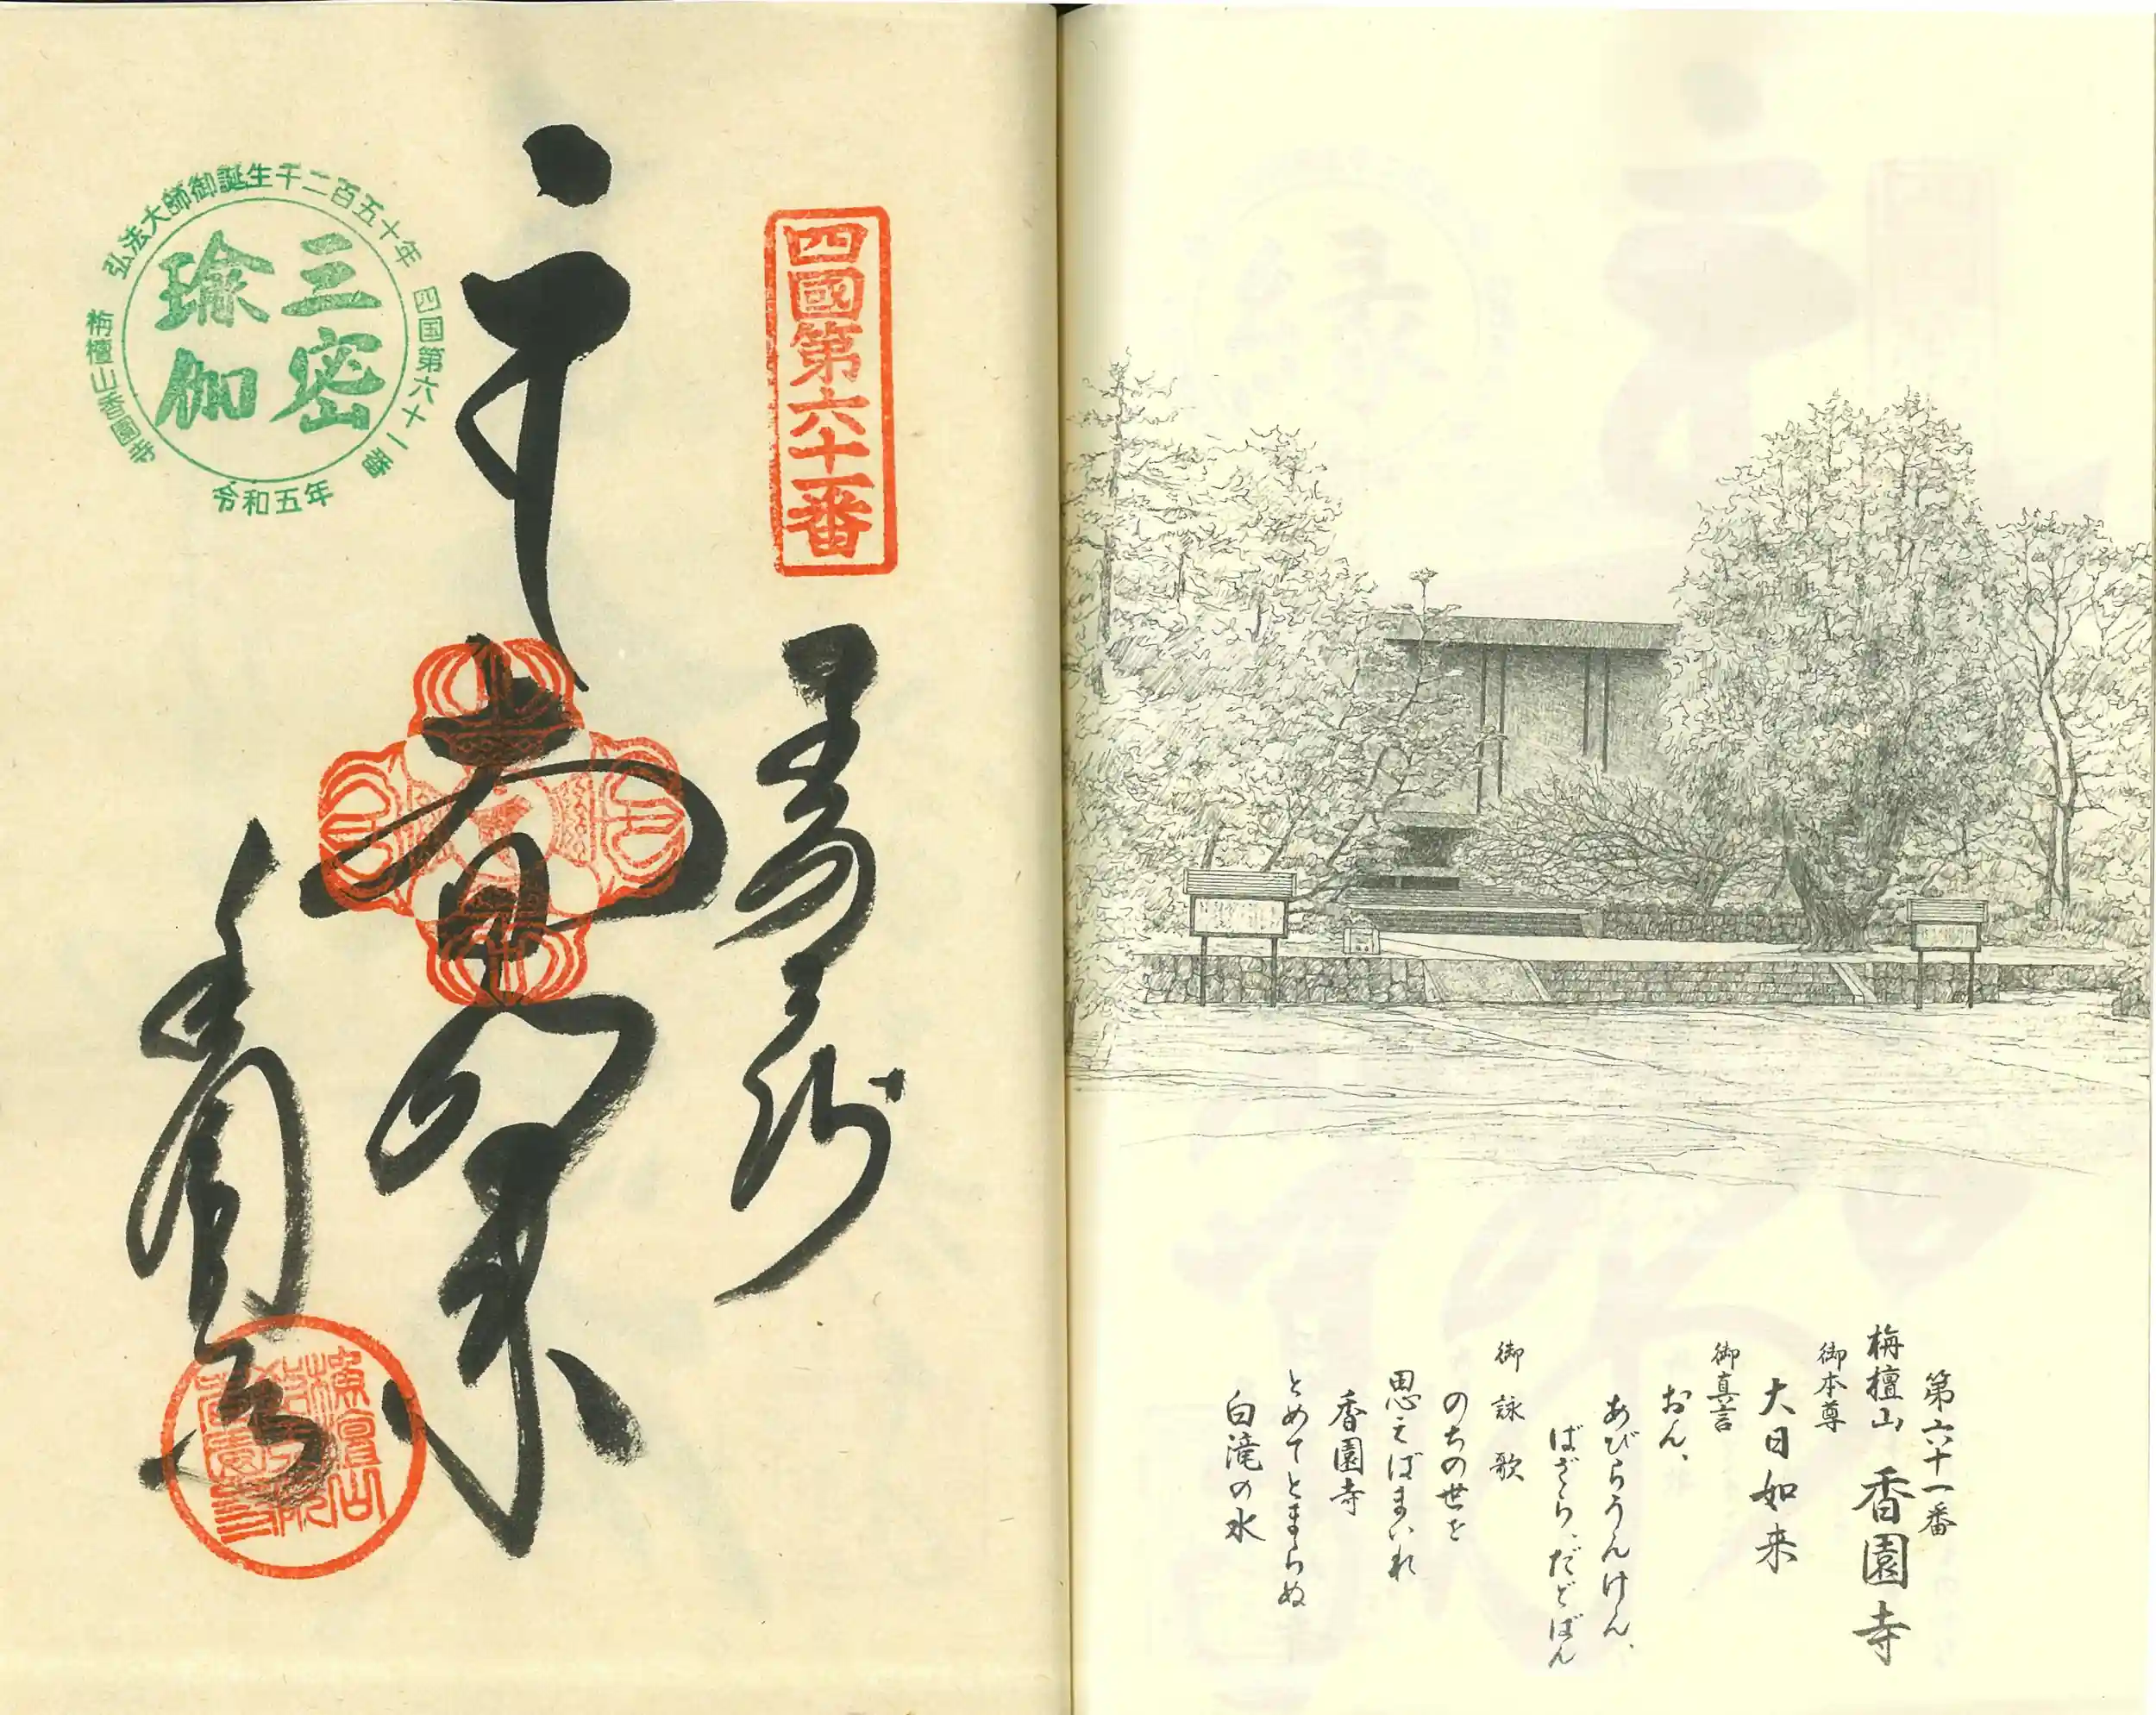 第六十一番
栴檀山 香園寺
御本尊
大日如来
御真言
おん、
あびらうんけん、
ばざら、だどばん
御詠歌
のちの世を
思えばまいれ
香園寺
とめてとまらぬ
白滝の水
四國第六十一番
奉納
大日如来
香園寺
弘法大師御誕生千二百五十年
四国第六十一番
栴檀山香園寺
令和五年
三密
瑜伽